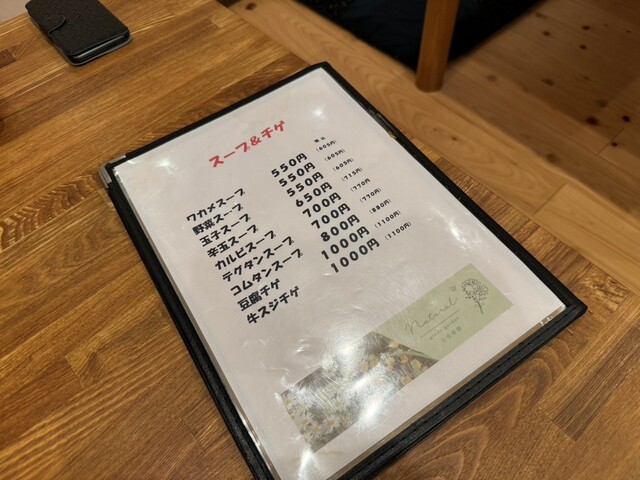 スープ&チゲ
税込
ワカメスープ 550円 (605円)
野菜スープ 550円 (605円)
玉子スープ 550円 (605円)
辛玉スープ 650円 (715円)
カルビスープ 700円 (770円)
テクタンスープ 700円 (770円)
コムタンスープ 800円 (880円)
豆腐チゲ 1000円 (1100円)
牛スジチゲ 1000円 (1100円)
Natural